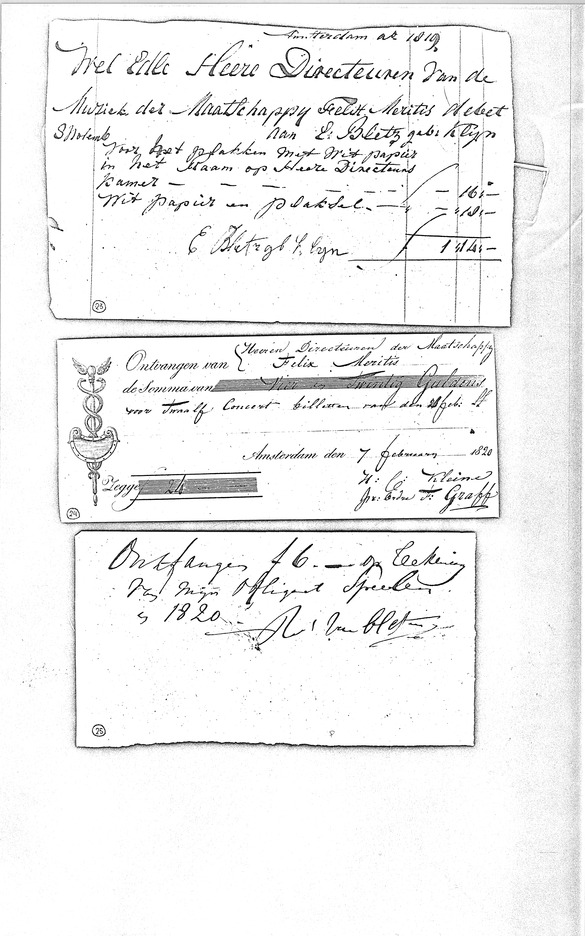 Amsterdam a° 1819
Wel Edle Heere Directeuren van de
Muziek der Maatschappy Felix Meritis debet
aan E: Bletz geb: Klyn
3 Novemb
voor het plakken met Wit papier
in het Raam op Heere Directeurs
kamer — — — — — 16:—
Wit papier en plaksel — — 18:—
1:14:—
E Bletz gb Klyn
23
Ontvangen van Heeren Directeuren der Maatschappy
Felix Meritis
de Somma van Vier en Twintig Guldens
voor Twaalf Concert billetten van den feb:
Amsterdam den 7 februarij 1820
Zegge 24
H: C: Kleine
F: Graff
24
Ontfangen f 6.— op Rekening
van mijn Obligaat Speelen
1820
25